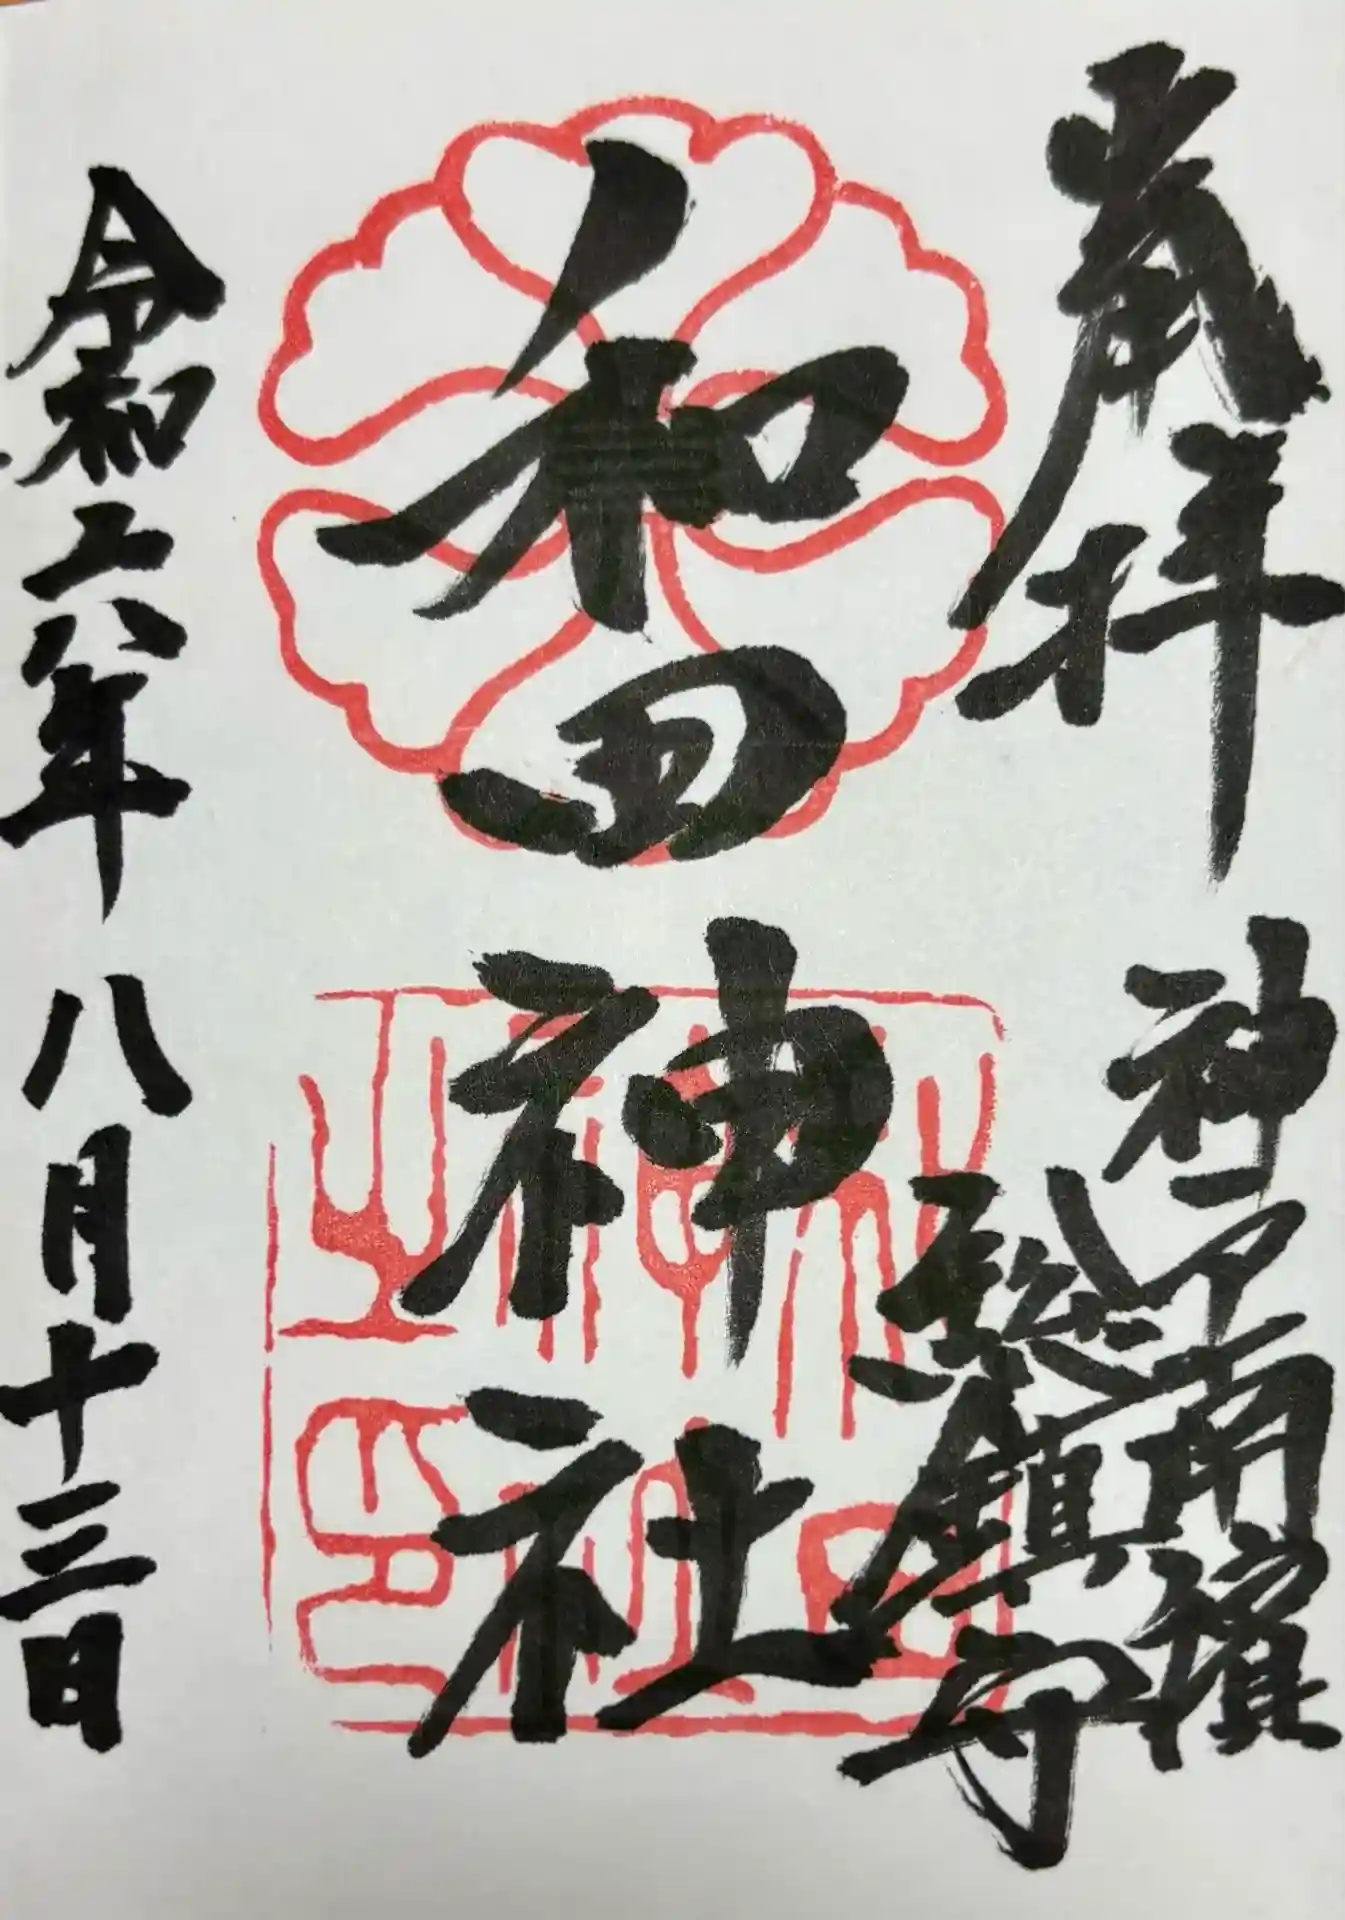 奉拝
神戸南濱
総鎮守
和田神社
令和六年 八月十三日